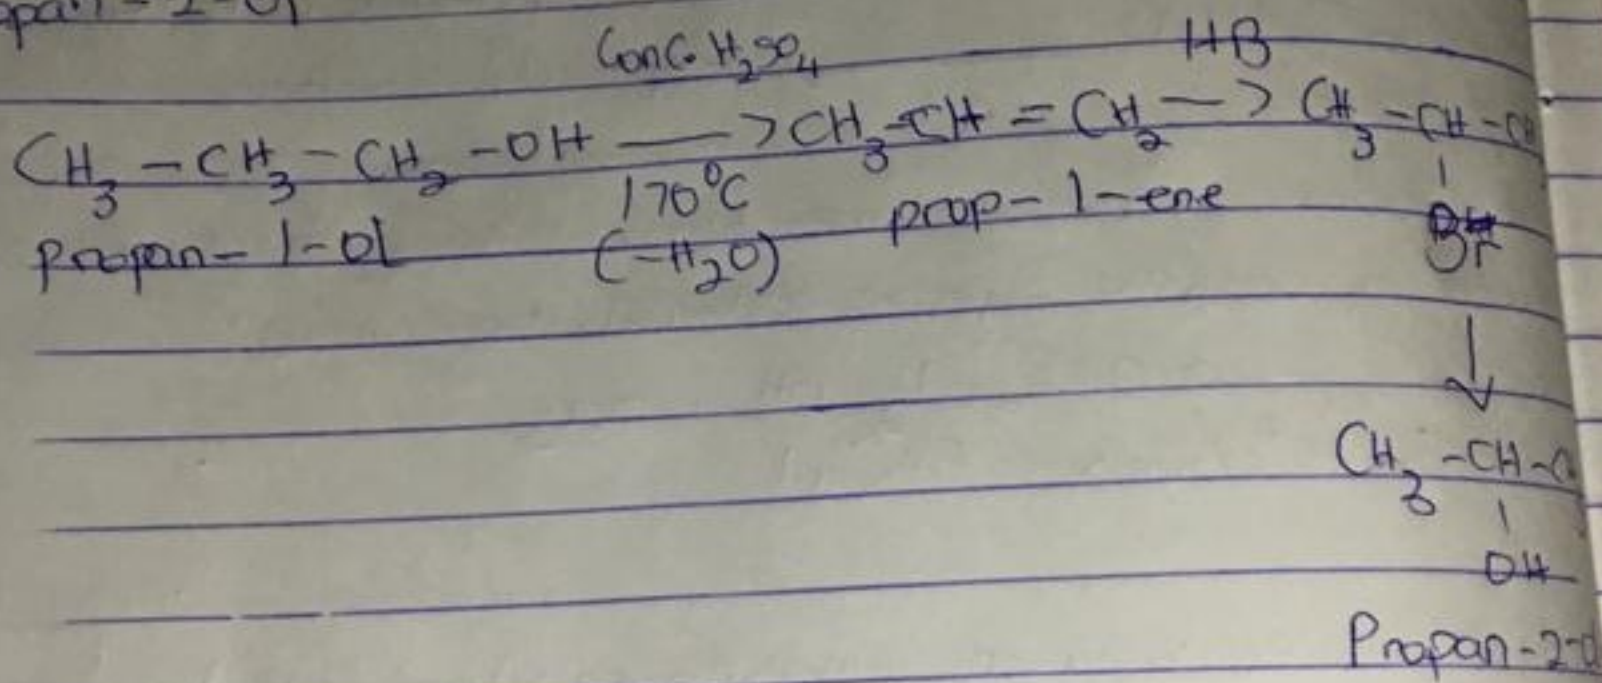 Conc. H₂SO₄ HB
CH₃ – CH₃ – CH₂ – OH —> CH₃ – CH = CH₂ —> CH₃ – CH –
170°C
Propan – 1 – ol (–H₂O) prop – 1 – ene Br
↓
CH₃ – CH –
OH
Propan – 2 –